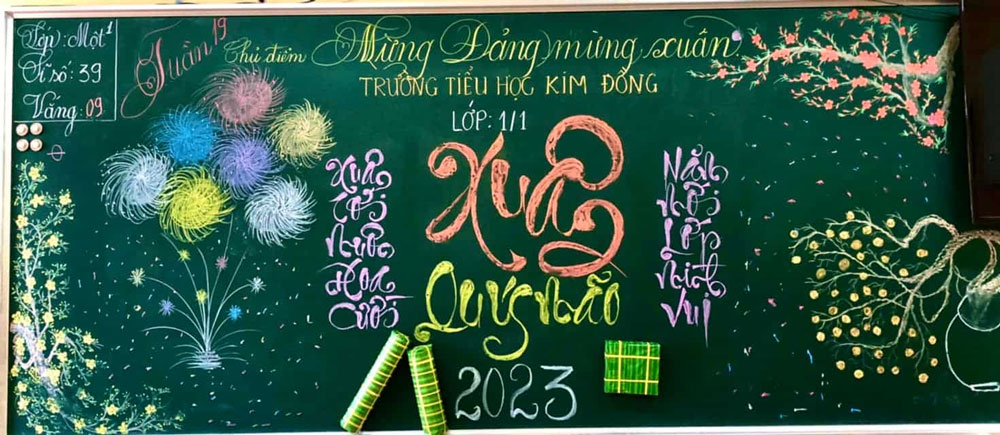 Lớp: Một¹
Sĩ số: 39
Vắng: 09
Tuần 19
Chủ điểm Mừng Đảng mừng xuân
TRƯỜNG TIỂU HỌC KIM ĐỒNG
LỚP: 1/1
Xuân
Tới
Muôn
Hoa
Cười
Xuân
Quý Mão
2023
Năm
Mới
Lớp
Mình
Vui